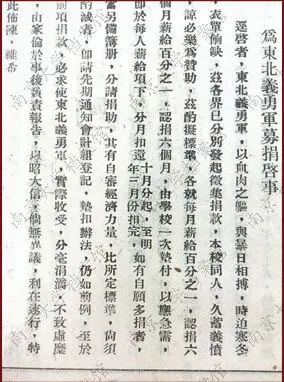 為東北義勇軍募捐啓事
逕啓者，東北義勇軍，以血肉之軀，與暴日相搏，時迫寒冬
衣單餉缺，茲各界已分別發起徵集捐款，本校同人，久蓄義憤
諒必樂為贊助，茲酌擬標準，各就每月薪給百分之一，認捐六
個月薪給百分之一，認捐六個月，由學校一次墊付，以應急需，
卽於每人薪給項下，分月扣還，十月份起，至明年三月份扣完，如有自願多捐者，
當另備簿册，分請捐助，其有自審經濟力量，比所定標準，尙須
酌減者，卽請先期通知會計組登記，墊扣辦法，仍如前例，至於
前項捐款，必求使東北義勇軍，實際收受，分毫捐滴，不致虛糜
，由家倫於事後負責報吿，以昭大信，倘無異議，利在速行，特
此佈陳，維希